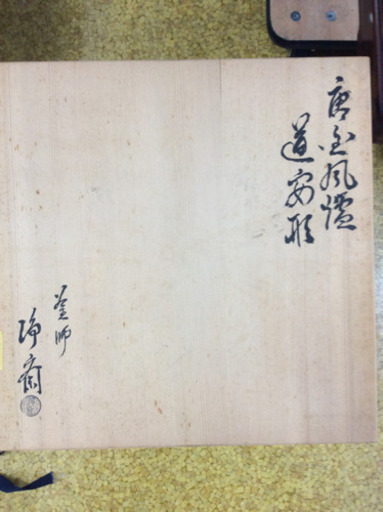 唐金風爐
道安形
釜師
浄斎